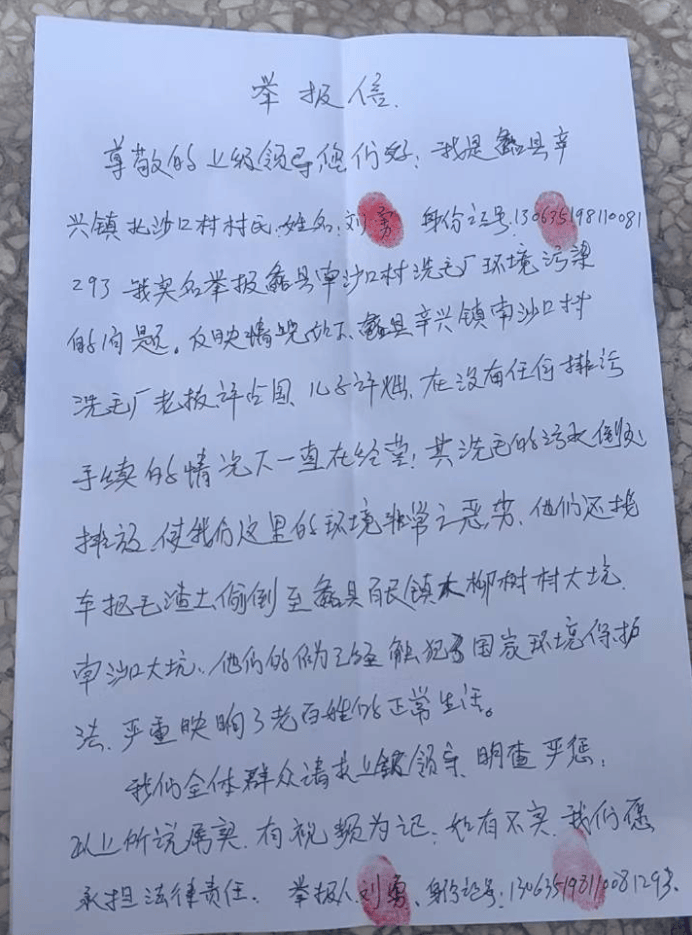 举报信.
尊敬的上级领导您们好:我是蠡县辛
兴镇北沙口村村民.姓名:刘勇 身份证号:130635198110081
293 我实名举报蠡县南沙口村洗毛厂环境污染
的问题。反映情况如下、蠡县辛兴镇南沙口村
洗毛厂老板许占国、儿子许烟、在没有任何排污
手续的情况下一直在经营!其洗毛的污水到处
排放、使我们这里的环境非常之恶劣、他们还找
车把毛渣土偷倒至蠡县百尺镇大柳树村大坑、
南沙口大坑、他们的行为已经触犯了国家环境保护
法、严重映响了老百姓们的正常生活。
我们全体群众请求上级领导、明查严惩;
以上所说属实、有视频为记、如有不实、我们愿
承担法律责任. 举报人刘勇、身份证号:130635198110081293.